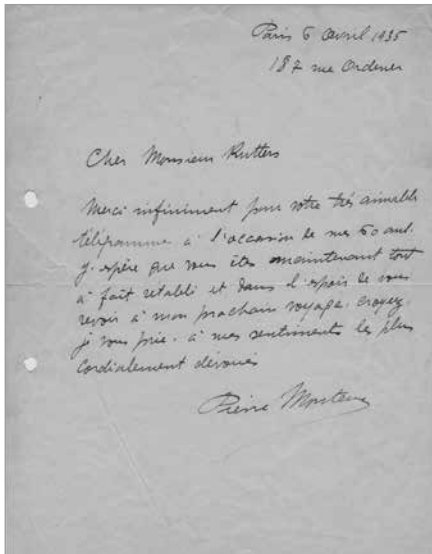 Paris 6 avril 1935
187 rue Ordener
Cher Monsieur Rutters
Merci infiniment pour votre très aimable
télégramme à l'occasion de mes 60 ans.
J'espère que vous êtes maintenant tout
à fait rétabli et dans l'espoir de vous
revoir à mon prochain voyage, croyez,
je vous prie, à mes sentiments les plus
cordialement dévoués
Pierre